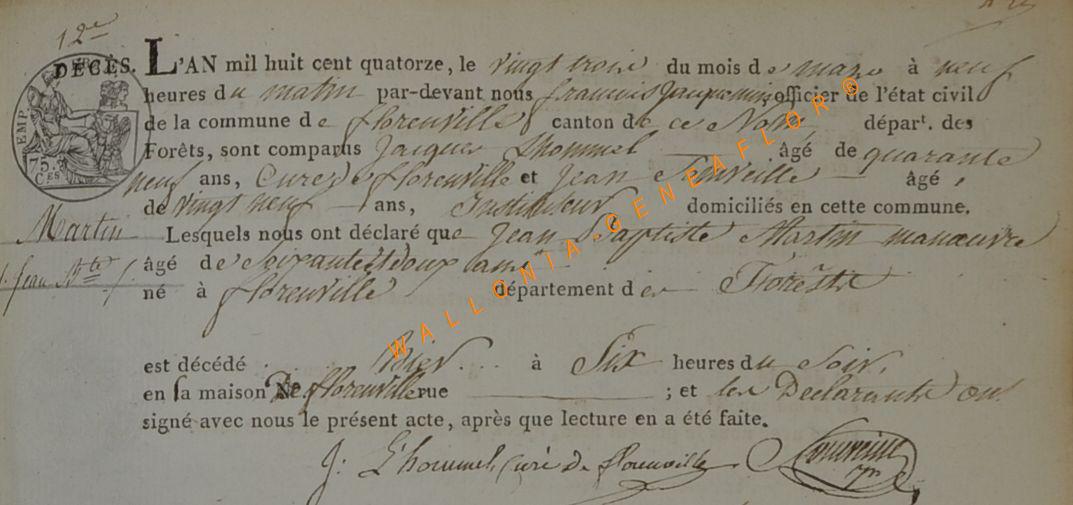 12e
DÉCÈS. L'AN mil huit cent quatorze, le vingt trois du mois de mars à neuf
heures du matin par-devant nous françois officier de l'état civil
de la commune de florenville canton de ce Nom, départ. des
Forêts, sont comparus Jacques Lhommel âgé de quarante
neuf ans, Curé de florenville et Jean âgé
de vingt neuf ans, Instituteur domiciliés en cette commune.
Martin Lesquels nous ont déclaré que Jean Baptiste Martin manœuvre
Jean Bte âgé de soixante et doux ans
né à florenville département des Forêsts
est décédé hier à Six heures du Soir,
en sa maison De florenville rue ; et les Declarants ont
signé avec nous le présent acte, après que lecture en a été faite.
J: L'hommel, Curé de florenville
EMP.
75
CES
WALLONIA GENEAFLOR ®